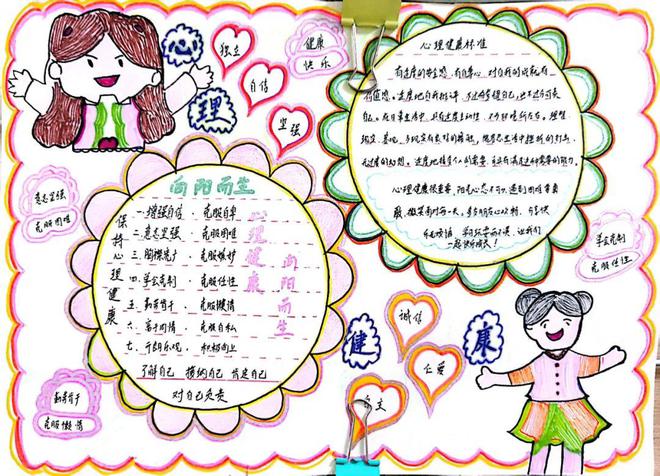 心
理
健
康
独立
自信
坚强
健康
快乐
意志坚强
克服困难
向阳而生
保持心理健康
一.增强自信、克服自卑
二.意志坚强、克服困难
三.胸襟宽广、克服嫉妒
四.学会克制、克服任性
五.勤劳肯干、克服懒惰
六.富于同情、克服自私
七.开朗乐观、积极向上
了解自己 接纳自己 肯定自己
对自己负责
心理健康
向阳而生
勤劳肯干
克服懒惰
心理健康标准
有适度的安全感，有自尊心，对自我的成就有
价值感。适度地自我批评，不过分夸耀自己，也不过分苛责
自己。在日常生活中，具有适度主动性，不为环境所左右。理智，
现实，客观，与现实有良好的接触，能忍受生活中挫折的打击，
无过度的幻想。适度地接受个人的需要，并具有满足这种需要的能力。
心理健康很重要，阳光心态不可少，遇到困难要勇
敢，微笑面对每一天。
一起快乐成长！
学会克制
克服任性
诚信
仁爱
自立